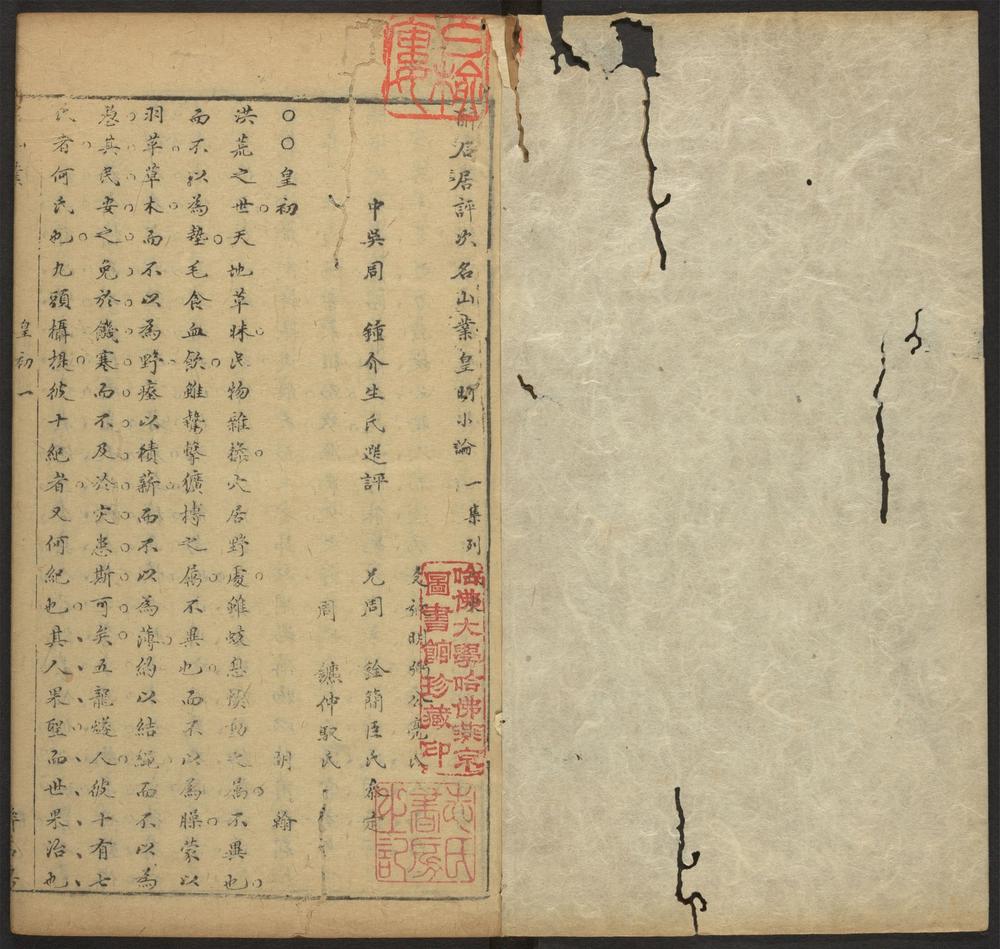 居居評次名山業皇明小論 一集列
中吳周 鍾介生氏選評 兄周 銓簡臣氏參定
周 鑣仲馭氏
○○皇初 胡 翰
洪荒之世天地草昧民物雜揉穴居野處雖蚑息蝡動之屬不異也
而不以為墊毛食血飲雖鷙擊獷搏之屬不異也而不以為臊蒙以
羽革草木而不以為野瘞以積薪而不以為薄約以結繩而不以為
愚其民安之免於饑寒而不及於灾患斯可矣五龍燧人彼十有七
氏者何氏也九頭攝提彼十紀者又何紀也其人果聖而世果治也
皇初一
哈佛大學哈佛燕京
圖書館珍藏印